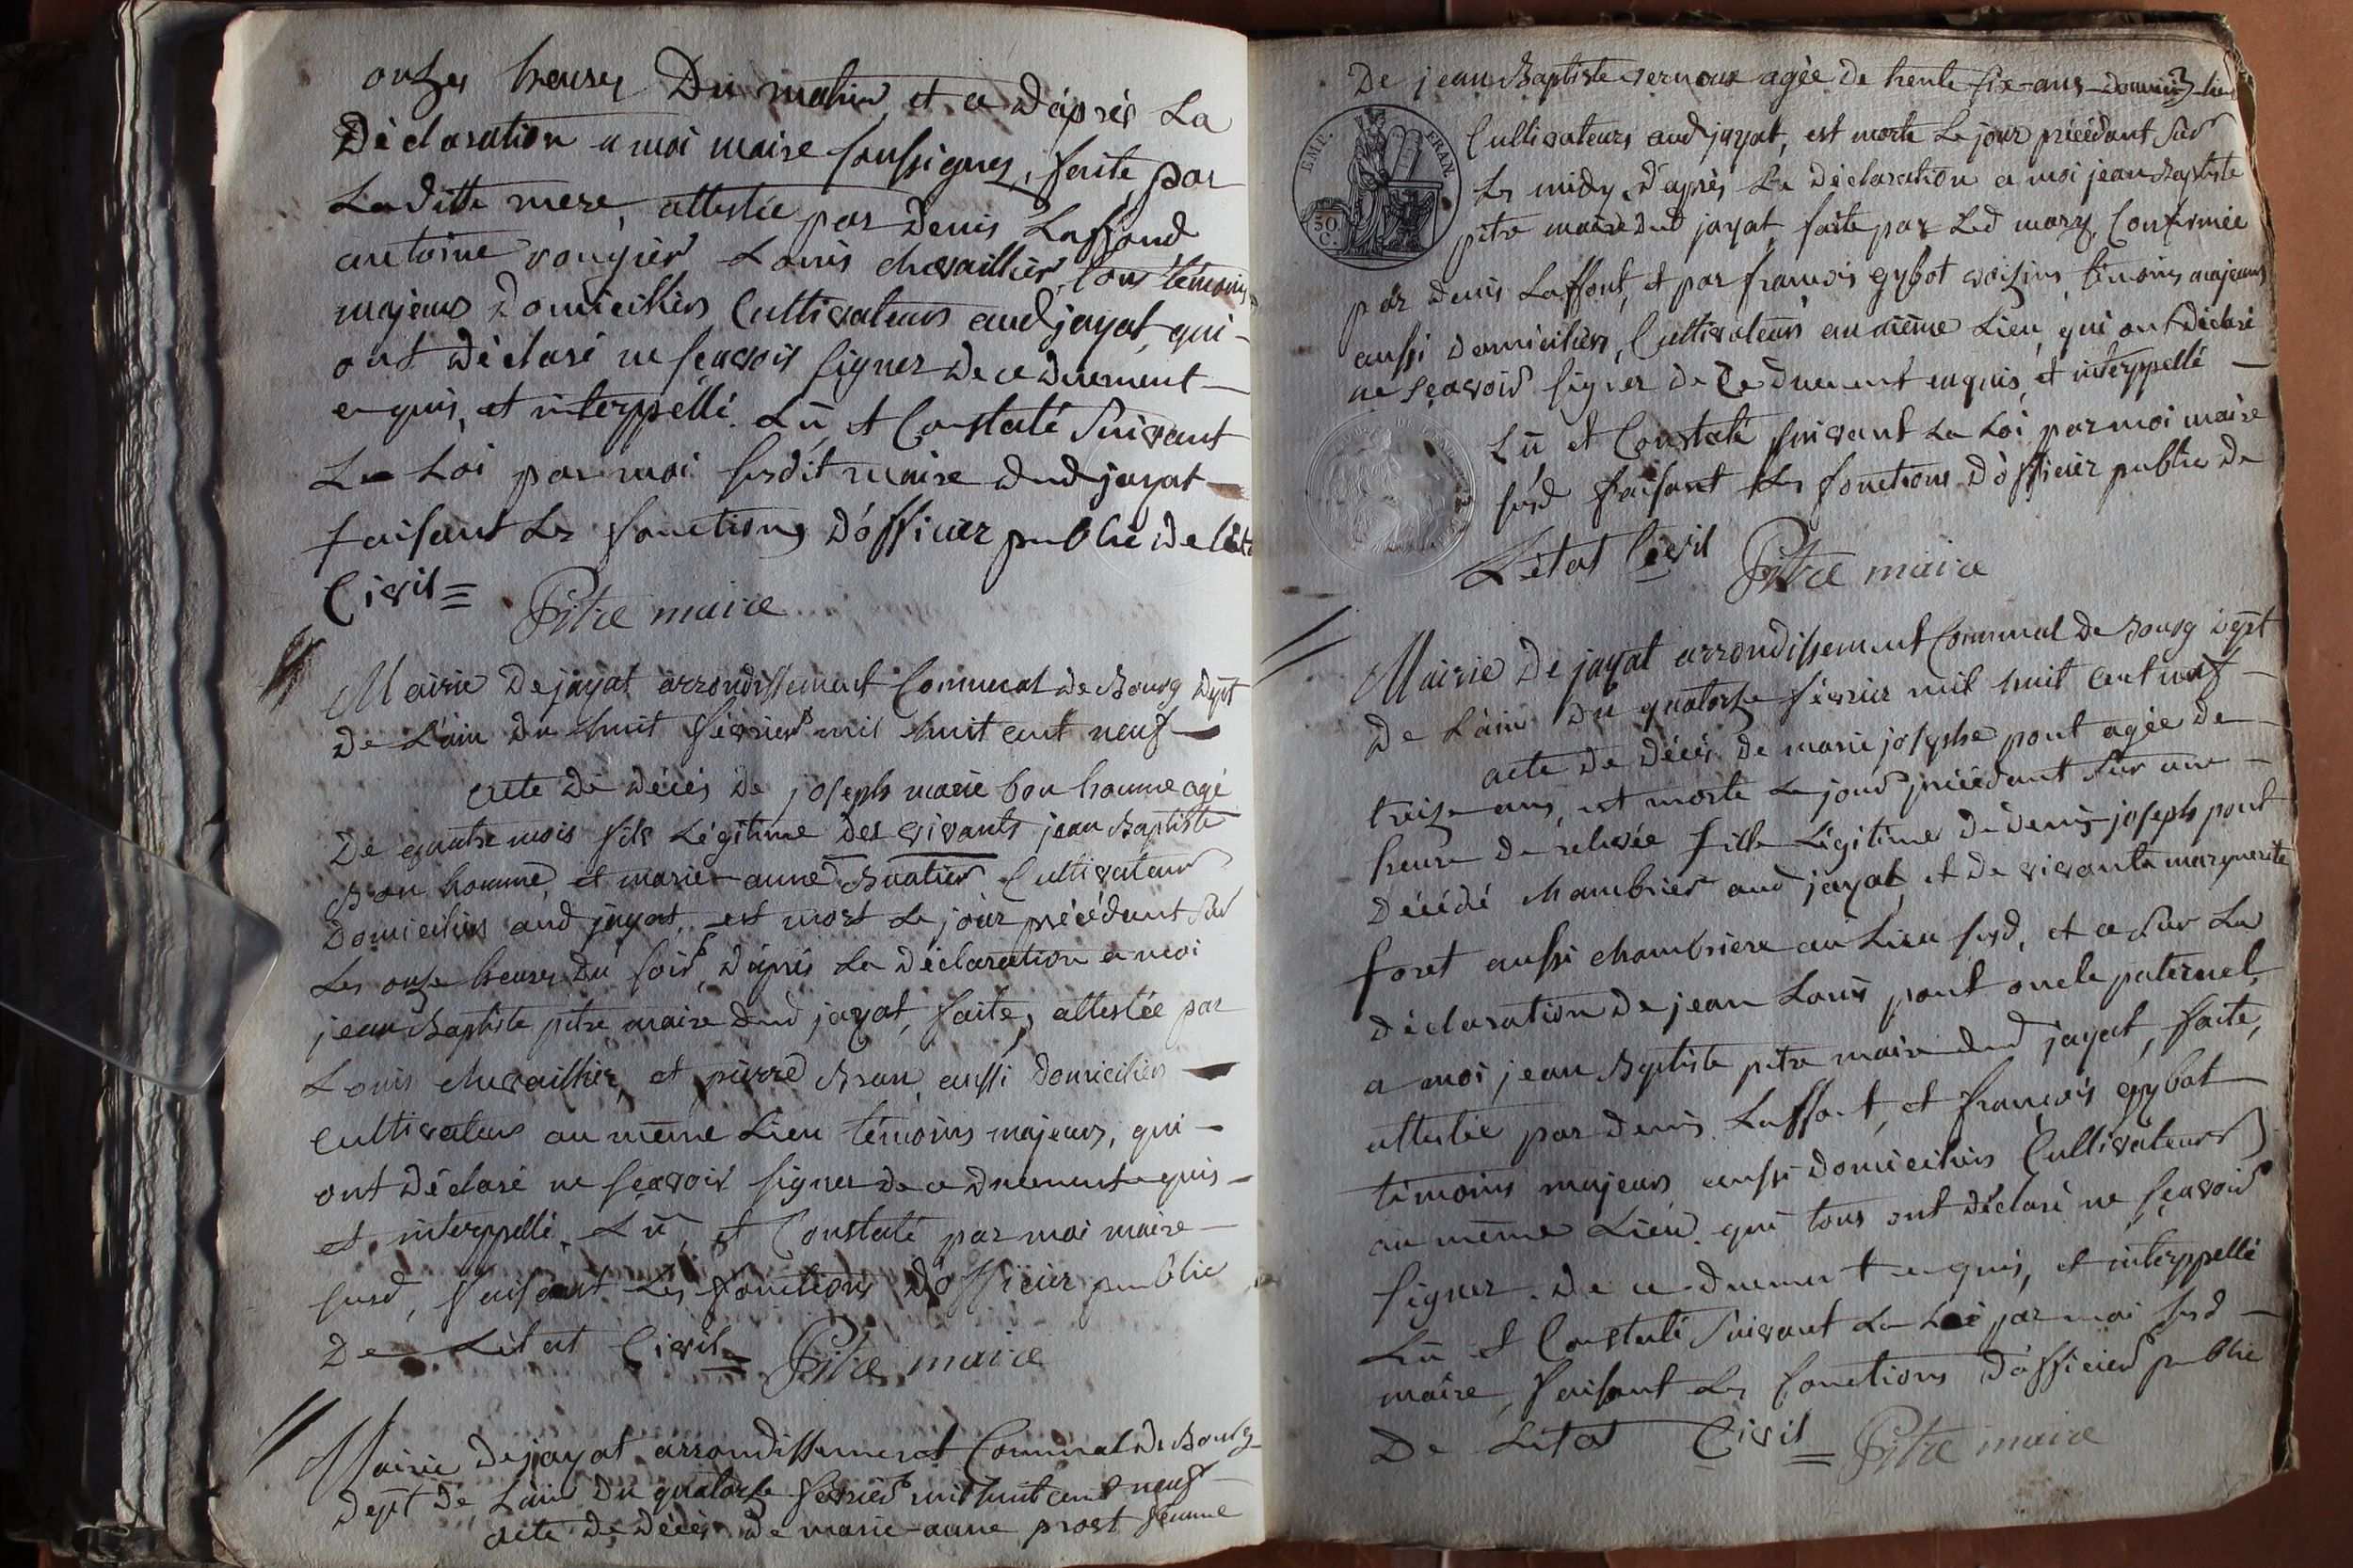 onzes heures Du matin, et ce d'après La
Déclaration a moi maire soussignés, faite par
Laditte mere, attestée par Denis Laffond
antoine rougier Louis chevaillier, tous témoins
majeurs Domiciliés Cultivateurs aud jayat, qui-
ont déclaré ne sçavoir signer de ce duement-
enquis, et interppellé. Lü et Constaté Suivant
La Loi par moi susdit maire dud jayat-
faisant les fonctions d'officier public de l'état
Civil= Pitre maire
Mairie De jayat arrondissement Communal de Bourg Dept
De L'ain Du huit février mil huit cent neuf-
acte de décès de joseph marie bon homme agé
De quatre mois fils Légitime des vivants jean Baptiste
Bon homme, et marie-anne Buatier Cultivateurs
Domiciliés aud jayat, est mort Le jour précédant sur
Les onze heures Du soir, d'après La Déclaration a moi
jean Baptiste pitre maire dud jayat, faite, attestée par
Louis chevaillier, et pierre Bran, aussi Domiciliés-
Cultivateurs au même Lieu témoins majeurs, qui-
ont Déclaré ne sçavoir signer de ce duement enquis-
et interppellé. Lü, et Constaté par moi maire-
susd, faisant Les fonctions D'officier public
De L'état Civil= Pitre maire
Mairie De jayat arrondissement Communal De Bourg
Dept De L'ain Du quatorze février mil huit cent neuf-
acte de décès de marie-anne prost femme
De jean Baptiste vernoux agée de trente six-ans domiciliés
EMP. FRAN.
50. C.
Cultivateurs aud jayat, est morte Le jour précédant sur
Les midy, d'après La Déclaration a moi jean Baptiste
pitre maire dud jayat, faite par Led mary, Confirmée
par Denis Laffont, et par francois gybot voisins, témoins majeurs
aussi domiciliés, Cultivateurs au même Lieu, qui ont Déclaré
ne sçavoir signer de Ce duement enquis, et interppellé-
Lü et Constaté suivant La Loi par moi maire
susd faisant Les fonctions D'officier public de
L'état Civil Pitre maire
Mairie De jayat arrondissement Communal de Bourg dept
De L'ain Du quatorze février mil huit cent neuf-
acte de décès de marie josephe pont agée de-
treize ans, est morte Le jour précédant Sur une-
heure de relevée fille Légitime de denis-joseph pont
Décédé chambrier aud jayat, et de vivante marguerite
foret aussi chambriere au Lieu susd, et ce sur La
Déclaration de jean Louis pont oncle paternel,
a moi jean Baptiste pitre maire dud jayat, faite,
attestée par denis Laffont, et françois gybot-
témoins majeurs aussi domiciliés Cultivateurs
au même Lieu. qui tous ont déclaré ne sçavoir
signer. De ce duement enquis, et interppellé
Lü et Constaté Suivant La Loi par moi susd-
maire, faisant Les fonctions d'officier public
De L'état Civil= Pitre maire